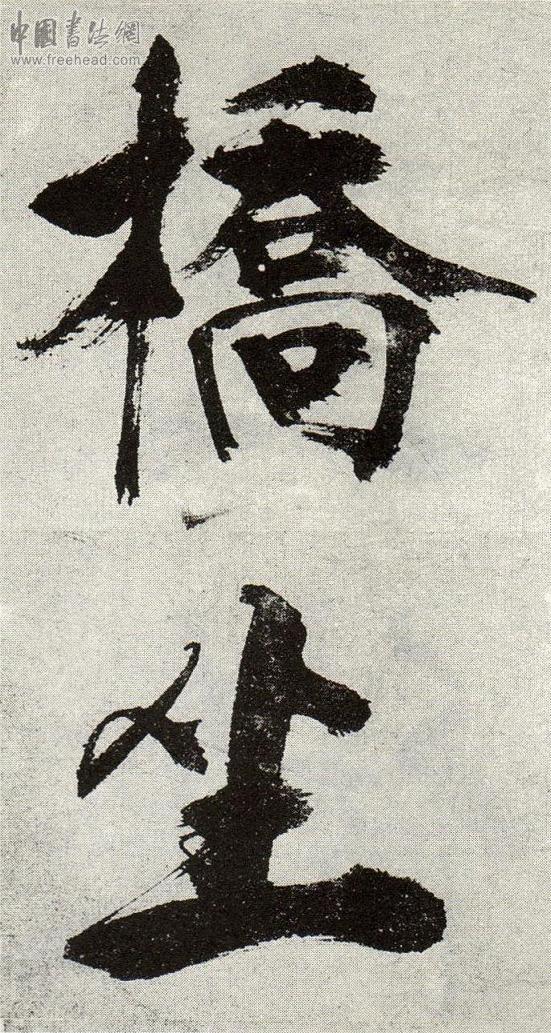 中國書法網
www.freehead.com
橋
坐